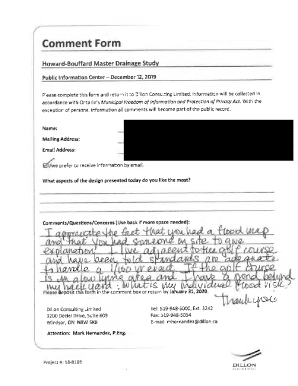 Comment Form
Howard-Bouffard Master Drainage Study
Public Information Center – December 12, 2019
Please complete this form and return it to Dillon Consulting Limited. Information will be collected in
accordance with Ontario's Municipal Freedom of Information and Protection of Privacy Act. With the
exception of personal information all comments will become part of the public record.
Name:
Mailing Address:
Email Address:
I/we prefer to receive information by email.
What aspects of the design presented today do you like the most?
Comments/Question/Concerns (Use back if more space needed):
I appreciate the fact that you had a flood map
and that you had someone on site to give
explanation! I live adjacent to the golf course
and have been told standards are adequate
to handle a 1/100 yr event. If the golf course
is in a low lying area and I have a pond behind
my backyard: what is my individual flood risk?
Please deposit this form in the comment box or return by January 31, 2020.
Thank you
Dillon Consulting Limited
3200 Deziel Drive, Suite 608
Windsor, ON N8W 5K8
Tel: 519-948-5000, Ext. 3242
Fax: 519-948-5054
E-mail: mhernandez@dillon.ca
Attention: Mark Hernandez, P.Eng.
Project #:
DILLON
CONSULTING